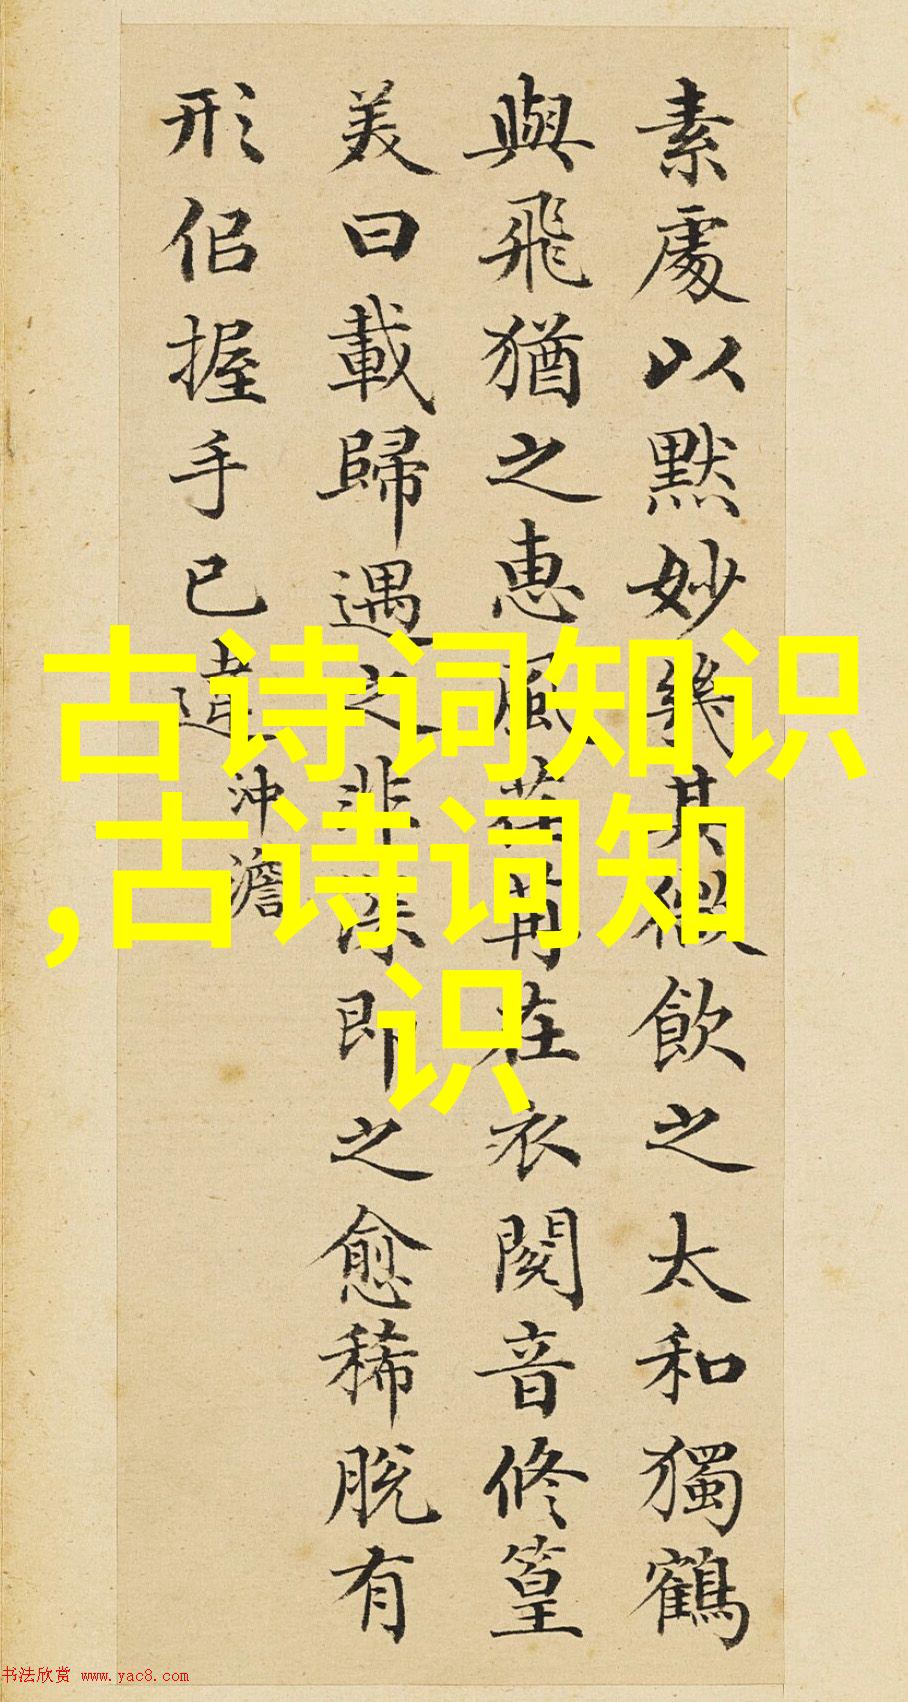 素處以默妙幾其微飲之太和獨鶴
與飛猶之惠風荏苒在衣閱音修篁
美曰載歸遇之非深即之愈稀脫有
形佀握手已違
沖澹
古诗词知识
,古诗词知
识
书法欣赏 www.yac8.com